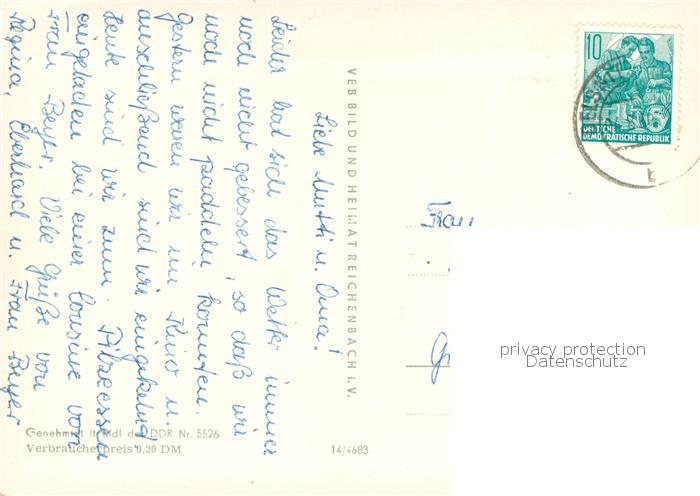 Liebe Mutti u. Oma!
Leider hat sich das Wetter immer
noch nicht gebessert, so daß wir
noch nicht paddeln konnten.
Gestern waren wir im Kino u.
anschließend sind wir eingekehrt.
Heute sind wir zum Pilzeessen
eingeladen bei einer Cousine von
Frau Beyer. Viele Grüße von
Regina, Eberhard u. Frau Beyer
VEB BILD UND HEIMAT REICHENBACH I. V.
Genehmigt lt. MdI der DDR Nr. 5526
Verbraucherpreis 0,20 DM
14/4683
10
DEUTSCHE
DEMOKRATISCHE REPUBLIK
Frau
privacy protection
Datenschutz